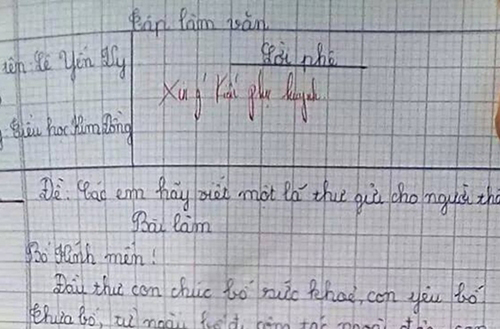 Tập làm văn
tên: Lê Yến Vy
Lời phê
Xin ý kiến phụ huynh.
g Tiểu học Kim Đồng
Đề: Các em hãy viết một lá thư gửi cho người thâ
Bài làm
Bố kính mến!
Đầu thư con chúc bố sức khoẻ, con yêu bố
Thưa bố, từ ngày bố đi